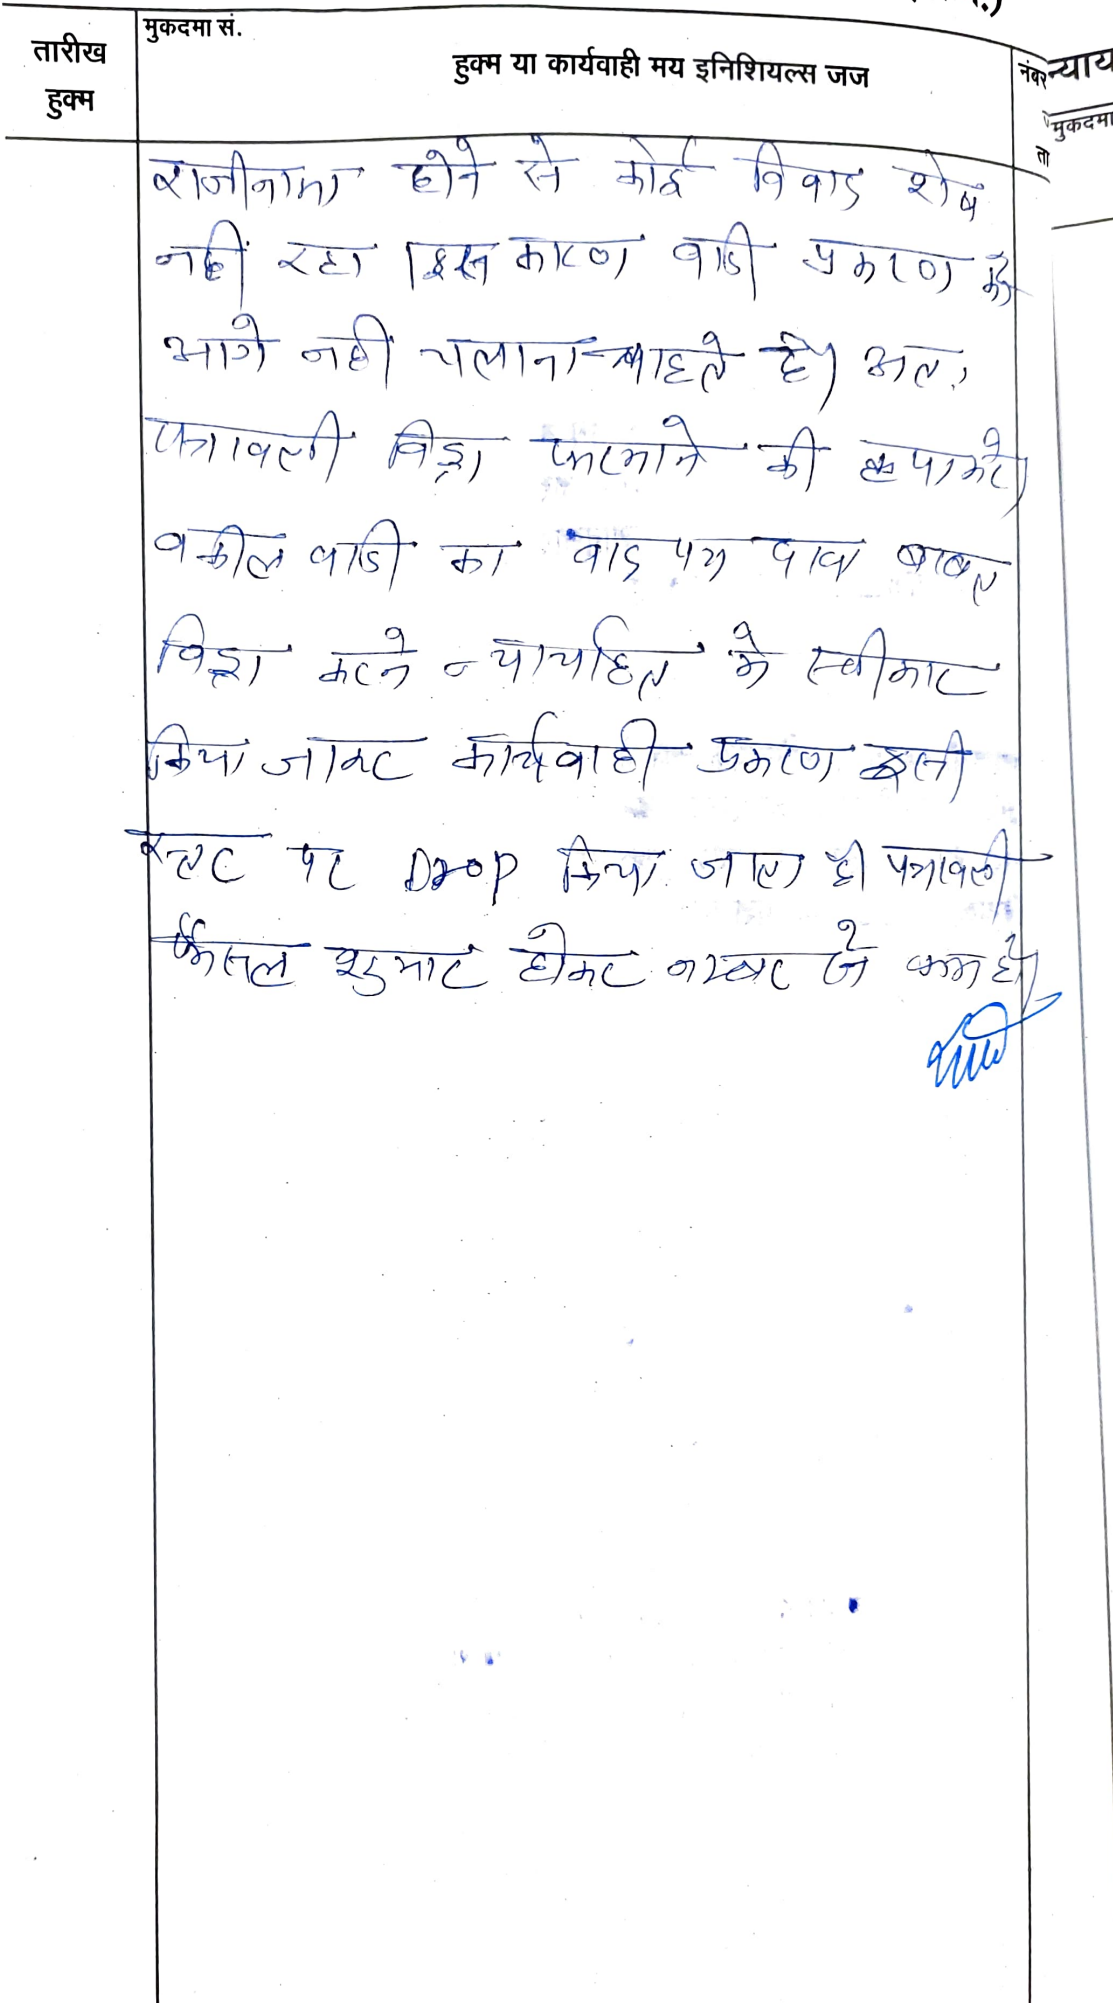 मुकदमा सं.
तारीख
हुक्म
हुक्म या कार्यवाही मय इनिशियल्स जज
नंबर
न्याय
मुकदमा
ता
राजीनामा होने से कोई विवाद शेष
नहीं रहा। इस कारण वादी प्रकरण को
आगे नहीं चलाना चाहते है। अतः
पत्रावली विड्रा फरमाने की कृपा करे।
वकील वादी का वाद पत्र बाबत
विड्रा करने न्यायहित मे स्वीकार
किया जाकर कार्यवाही प्रकरण इसी
स्टेट पर Drop किया जाता है। पत्रावली
फैसल शुमार होकर नम्बर से कम हो।